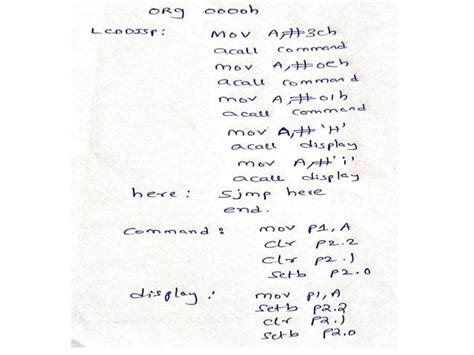 ORg 0000h
LCDDISP: Mov A,#3ch
acall command
mov A,#0eh
acall command
mov A,#01h
acall command
mov A,# 'H'
acall display
mov A,#'i'
acall display
here: Sjmp here
end.
Command: mov p1,A
Clr p2.2
Clr p2.1
Setb p2.0
display: mov p1,A
Setb p2.2
Clr p2.1
Setb p2.0